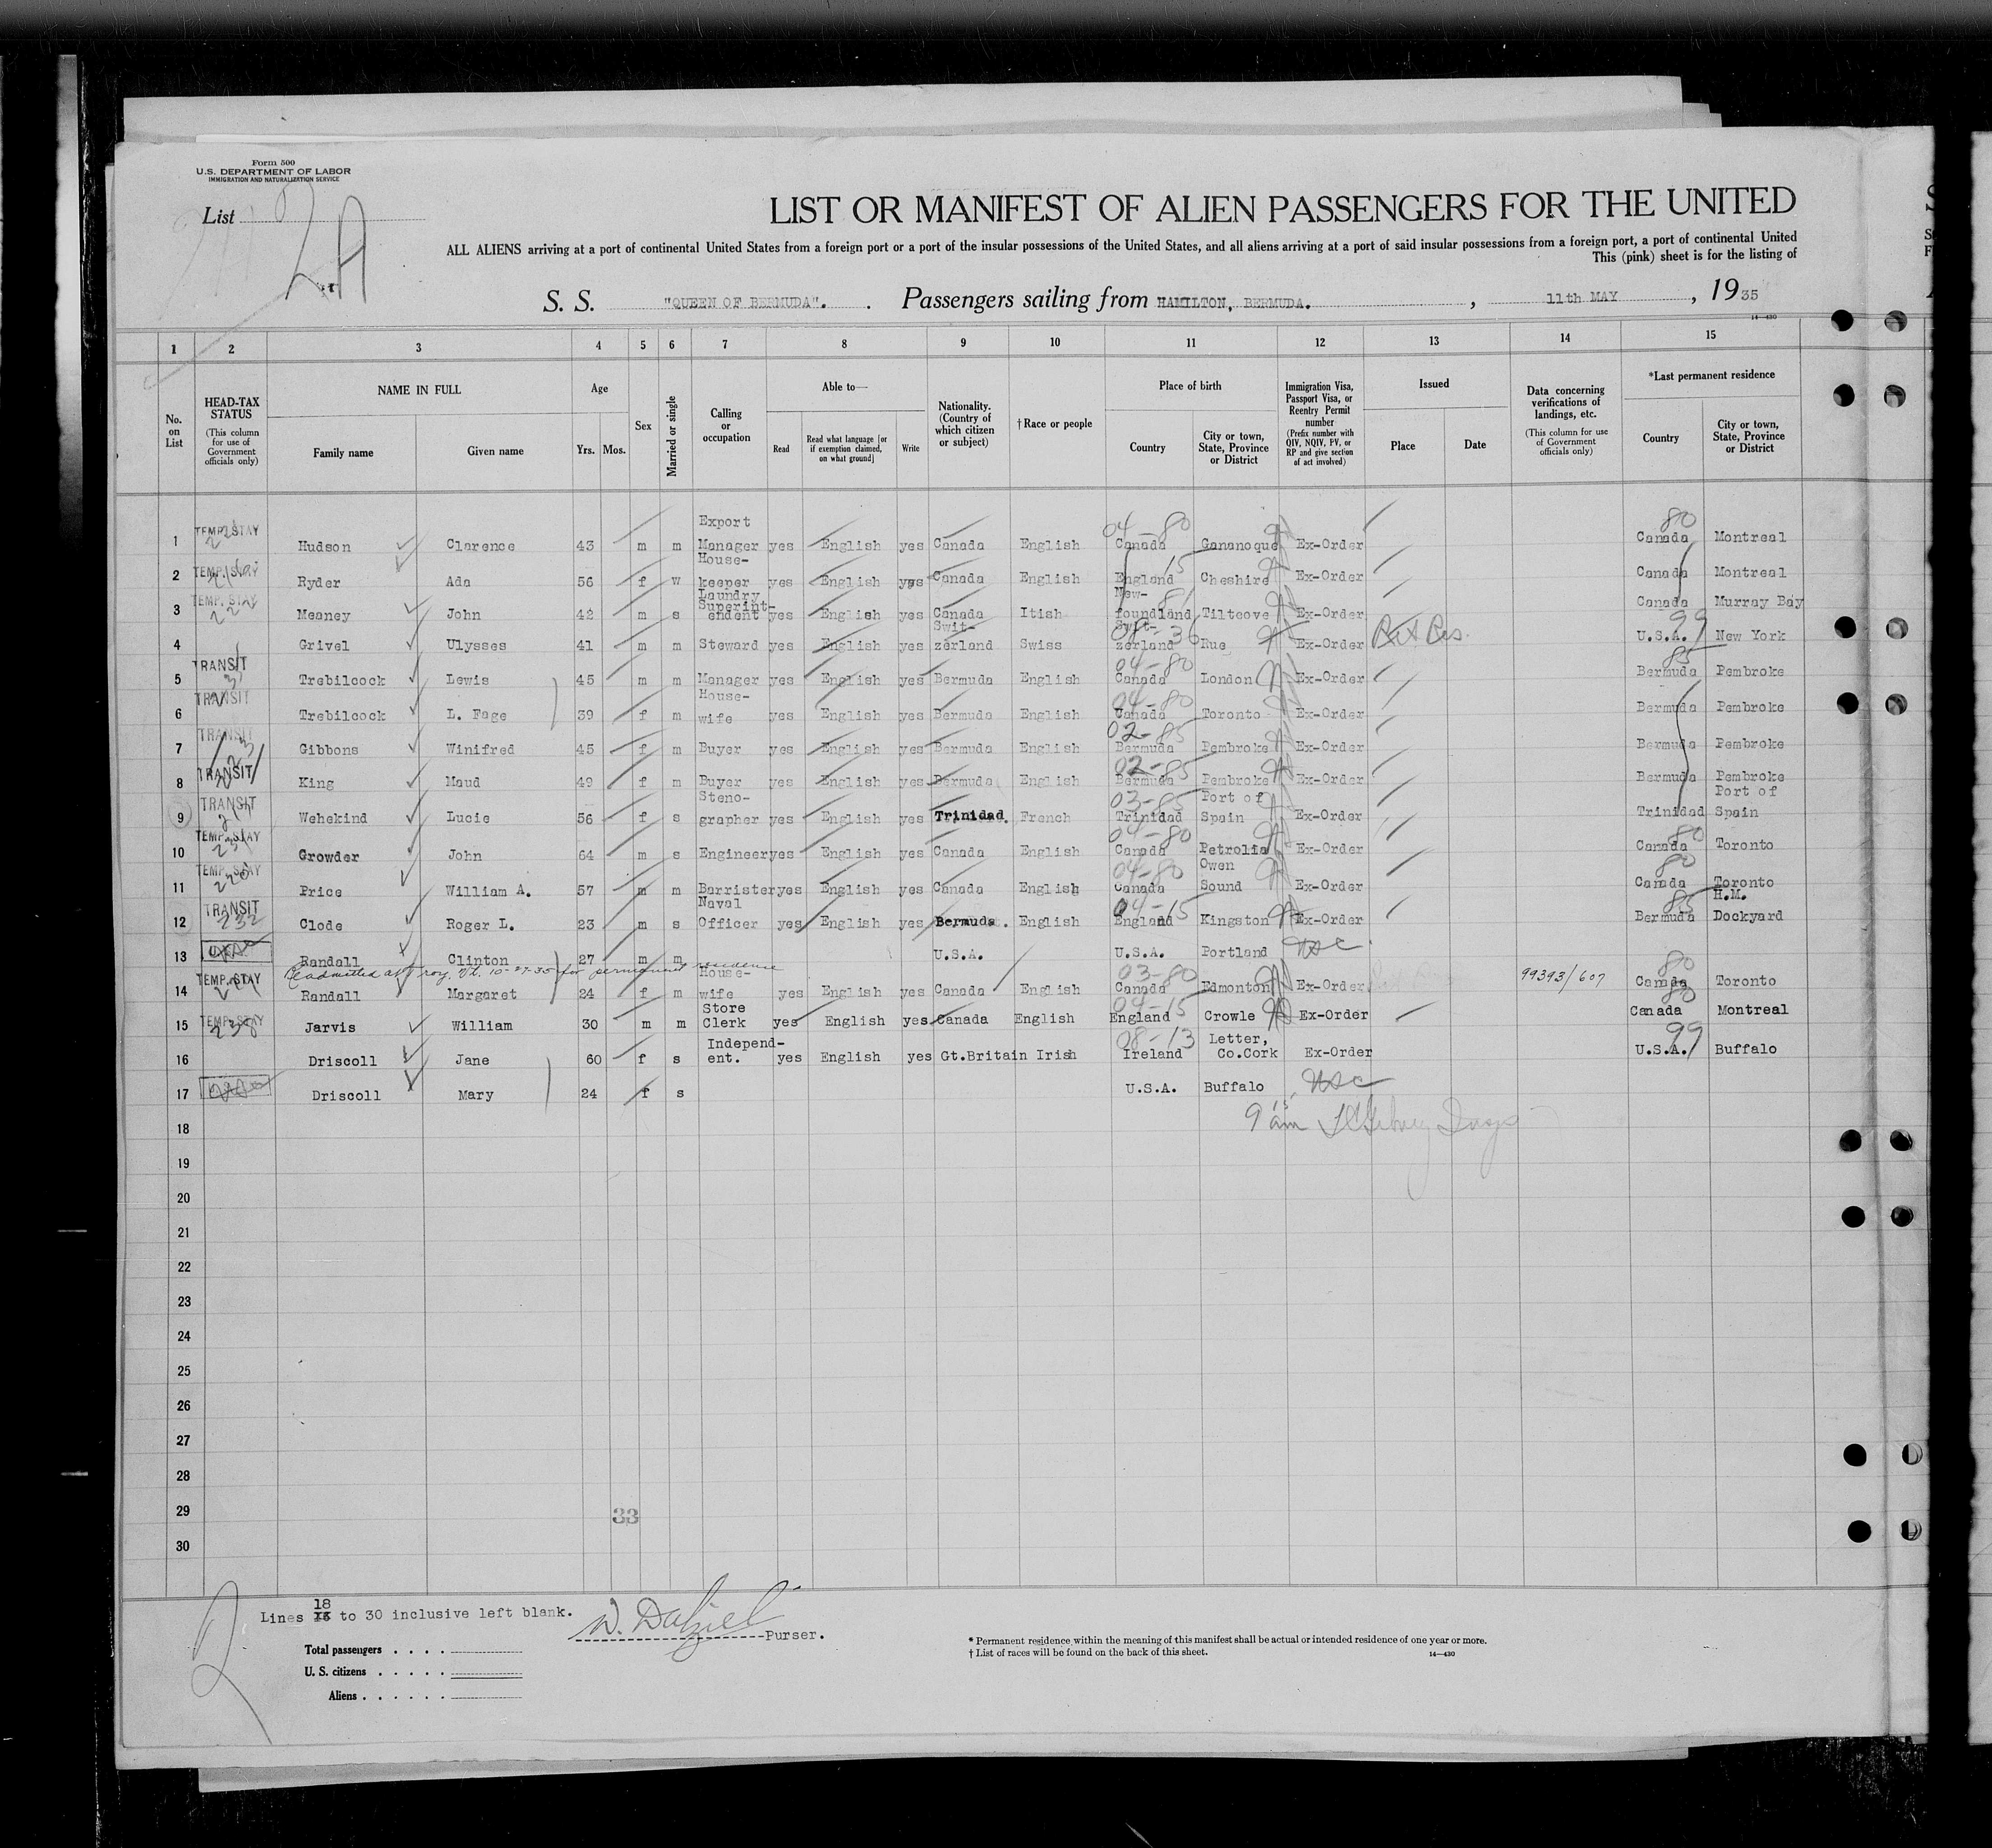 Form 500
U.S. DEPARTMENT OF LABOR
IMMIGRATION AND NATURALIZATION SERVICE
List
2A
LIST OR MANIFEST OF ALIEN PASSENGERS FOR THE UNITED
ALL ALIENS arriving at a port of continental United States from a foreign port or a port of the insular possessions of the United States, and all aliens arriving at a port of said insular possessions from a foreign port, a port of continental United
This (pink) sheet is for the listing of
S. S. "QUEEN OF BERMUDA". Passengers sailing from HAMILTON, BERMUDA. , 11th MAY , 19 35
14—430
1 2 3 4 5 6 7 8 9 10 11 12 13 14 15
No. on List
HEAD-TAX STATUS (This column for use of Government officials only)
NAME IN FULL Family name Given name
Age Yrs. Mos.
Sex
Married or single
Calling or occupation
Able to— Read Read what language [or if exemption claimed, on what ground] Write
Nationality. (Country of which citizen or subject)
† Race or people
Place of birth Country City or town, State, Province or District
Immigration Visa, Passport Visa, or Reentry Permit number (Prefix number with QIV, NQIV, PV, or RP and give section of act involved)
Issued Place Date
Data concerning verifications of landings, etc. (This column for use of Government officials only)
*Last permanent residence Country City or town, State, Province or District
1 TEMP. STAY Hudson Clarence 43 m m Export Manager yes English yes Canada English 04-80 Canada Gananoque Ex-Order 80 Canada Montreal
2 TEMP. STAY Ryder Ada 56 f w House-keeper yes English yes Canada English 15 England Cheshire Ex-Order Canada Montreal
3 TEMP. STAY Meaney John 42 m s Laundry Superint-endent yes English yes Canada Itish 81 New-foundland Tilteove Ex-Order Canada Murray Bay
4 Grivel Ulysses 41 m m Steward yes English yes Swit-zerland Swiss Swit-zerland Rue Ex-Order Ret Res. 99 U.S.A. New York
5 TRANSIT Trebilcock Lewis 45 m m Manager yes English yes Bermuda English 04-80 Canada London Ex-Order 85 Bermuda Pembroke
6 TRANSIT Trebilcock L. Fage 39 f m House-wife yes English yes Bermuda English 04-80 Canada Toronto Ex-Order Bermuda Pembroke
7 TRANSIT Gibbons Winifred 45 f m Buyer yes English yes Bermuda English 02-85 Bermuda Pembroke Ex-Order Bermuda Pembroke
8 TRANSIT King Maud 49 f m Buyer yes English yes Bermuda English 02-85 Bermuda Pembroke Ex-Order Bermuda Pembroke
9 TRANSIT Wehekind Lucie 56 f s Steno-grapher yes English yes Trinidad. French 03-85 Trinidad Port of Spain Ex-Order Trinidad Port of Spain
10 TEMP. STAY Growder John 64 m s Engineer yes English yes Canada English 04-80 Canada Petrolia Ex-Order 80 Canada Toronto
11 TEMP. STAY Price William A. 57 m m Barrister yes English yes Canada English 04-80 Canada Owen Sound Ex-Order 80 Canada Toronto
12 TRANSIT 232 Clode Roger L. 23 m s Naval Officer yes English yes Bermuda. English 04-15 England Kingston Ex-Order 85 Bermuda H.M. Dockyard
13 Randall Clinton 27 m m U.S.A. U.S.A. Portland USC
Readmitted at Troy, Vt. 10-27-35 for permanent residence
14 TEMP. STAY Randall Margaret 24 f m House-wife yes English yes Canada English 03-80 Canada Edmonton Ex-Order 99393/607 80 Canada Toronto
15 TEMP. STAY Jarvis William 30 m m Store Clerk yes English yes Canada English 04-15 England Crowle Ex-Order 80 Canada Montreal
16 Driscoll Jane 60 f s Independ-ent. yes English yes Gt.Britain Irish 08-13 Ireland Letter, Co.Cork Ex-Order 99 U.S.A. Buffalo
17 Driscoll Mary 24 f s U.S.A. Buffalo USC
18 9 15 am
19
20
21
22
23
24
25
26
27
28
29
30
33
Lines 18 to 30 inclusive left blank.
W. Dalziel Purser.
Total passengers
U. S. citizens
Aliens
* Permanent residence within the meaning of this manifest shall be actual or intended residence of one year or more.
† List of races will be found on the back of this sheet.
14—430